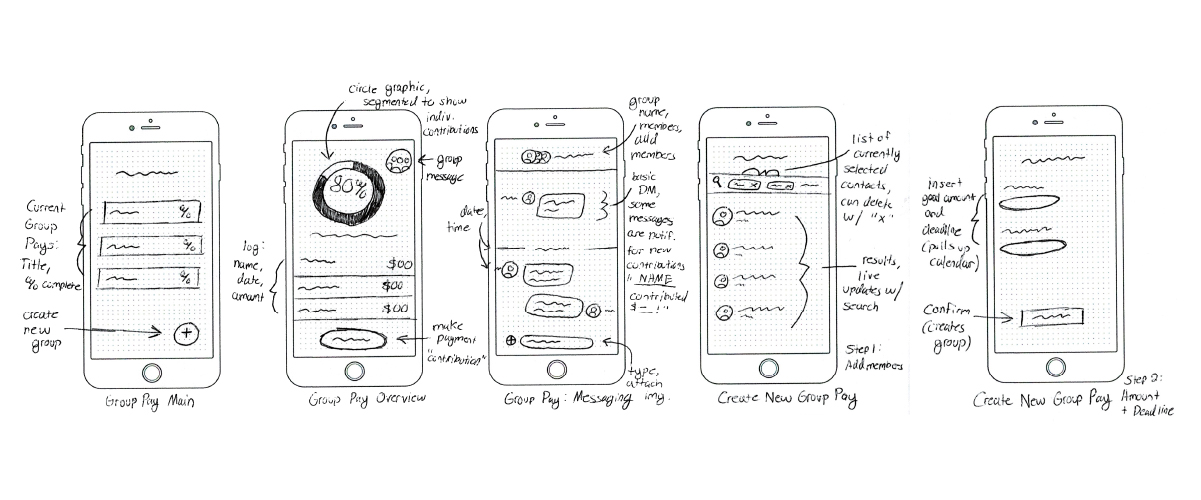 Current
Group
Pays:
Title,
% complete
create
new
group
%
%
%
+
Group Pay Main
circle graphic,
segmented to show
indiv.
contributions
80%
group
message
log:
name,
date,
amount
$00
$00
$00
make
payment
"contribution"
Group Pay Overview
group
name,
members,
add
members
date,
time
basic
DM,
some
messages
are notif.
for new
contributions
"NAME
contributed
$ _ _ !"
type,
attach
img.
Group Pay: Messaging
list of
currently
selected
contacts,
can delete
w/ "x"
x
x
results,
live
updates w/
search
Step 1:
Add members
Create New Group Pay
insert
goal amount
and
deadline
(pulls up
calendar)
Confirm
(creates
group)
Create New Group Pay
Step 2:
Amount
+ Deadline